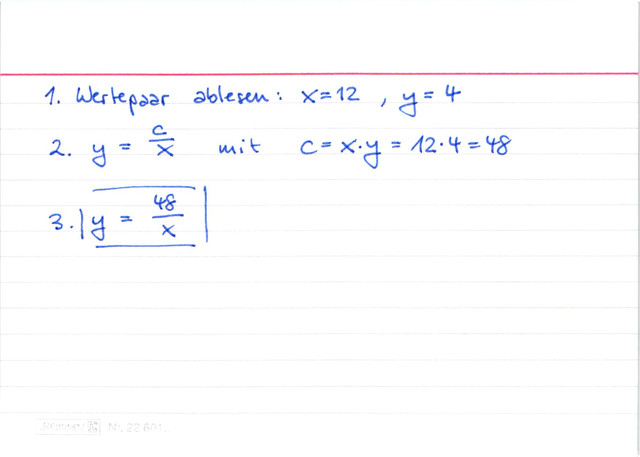 1. Wertepaar ablesen: x=12, y=4
2. y = c/x mit c = x·y = 12·4 = 48
3. y = 48/x
Nr. 22 601